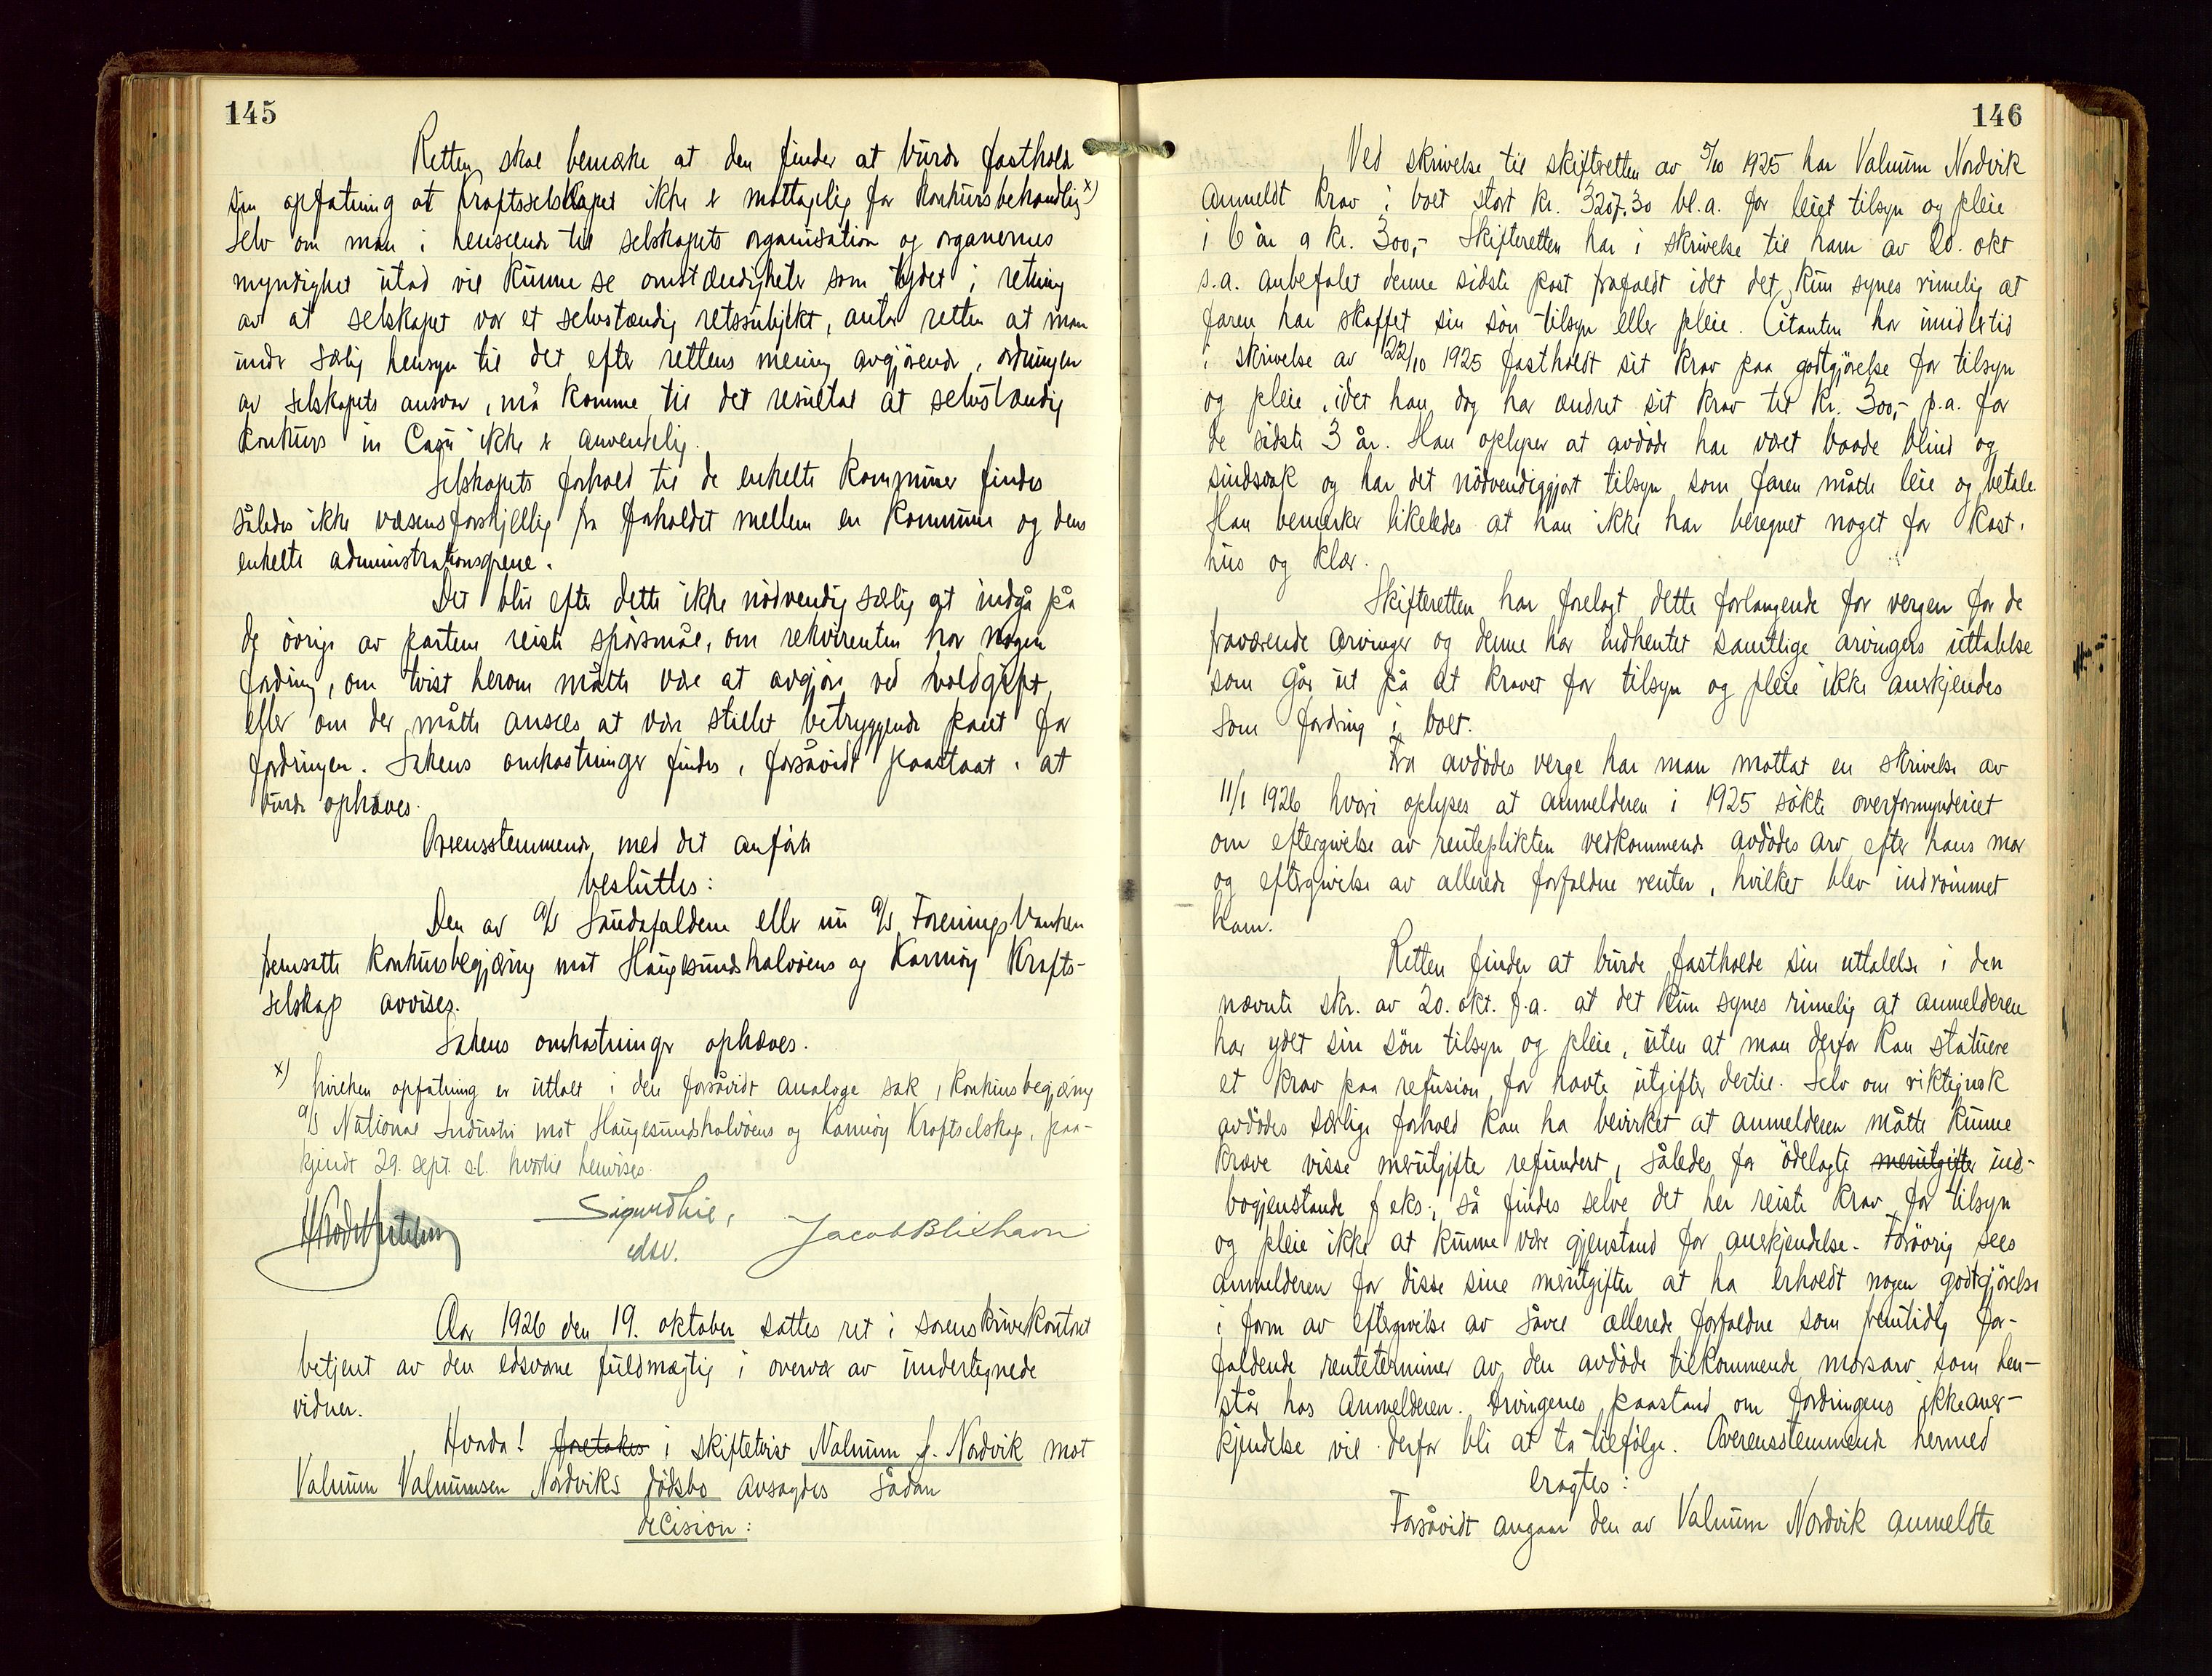 145
Retten skal bemærke at den finder at burde fastholde
sin opfatning at Kraftsselskapet ikke er mottagelig for Konkursbehandlig x)
selv om man i henseende til selskapets organisation og organernes
myndighet utad vil kunne se omstændigheter som tydet i retning
av at selskapet var et selvstændig retssubjekt, antar retten at man
under særlig hensyn til det efter rettens mening avgjørende, ordningen
av selskapets ansvar, må komme til det resultat at selvstændig
konkurs in Casu ikke er anvendelig.
Selskapets forhold til de enkelte Kommuner findes
således ikke væsensforskjellig fra forholdet mellem en Kommune og dens
enkelte administrationsgrene.
Det blir efter dette ikke nödvendig særlig at indgå på
de övrige av partene reiste spörsmål, om rekvirenten har nogen
fordring, om tvist herom måtte være at avgjöre ved voldgift,
eller om der måtte ansees at være stillet betryggende pant for
fordringen. Sakens omkostninger findes, forsåvidt paastaat, at
burde ophæves.
Overensstemmende med det anförte
besluttes:
Den av A/S Saudafaldene eller nu A/S Foreningsbanken
fremsatte Konkursbegjæring mot Haugesundshalvöens og Karmöy Krafts-
selskap avvises.
Sakens omkostninger ophæves.
x) hvilken opfatning er uttalt i den forsåvidt analoge sak, Konkursbegjæring
A/S National Industri mot Haugesundshalvöens og Karmöy Kraftselskap, paa-
kjendt 29. sept. s.l. hvortil henvises.
Sigurd Lie, Jacob Blixhavn
edsv.
Aar 1926 den 19. oktober sattes ret i sorenskriverkontoret
betjent av den edsvorne fuldmægtig i overvær av undertegnede
vidner.
Hvorda! foretakes i skiftetvist Valnum J. Nordvik mot
Valnum Valnumsen Nordviks dödsbo avsagdes sådan
decision:
146
Ved skrivelse til skifteretten av 5/10 1925 har Valnum Nordvik
anmeldt krav i boet stort kr. 3207.30 bl.a. for leiet tilsyn og pleie
i 6 år a kr. 300,- Skifteretten har i skrivelse til ham av 20. okt
s.a. anbefalet denne sidste post frafaldt idet det kun synes rimelig at
faren har skaffet sin sön tilsyn eller pleie. Citanten har imidlertid
i skrivelse av 22/10 1925 fastholdt sit krav paa godtgjörelse for tilsyn
og pleie, idet han dog har ændret sit krav til kr. 300,- p.a. for
de sidste 3 år. Han oplyser at avdöde har været baade blind og
sindssvak og har det nödvendiggjort tilsyn som faren måtte leie og betale.
Han bemerker likeledes at han ikke har beregnet noget for kost,
hus og klær.
Skifteretten har forelagt dette forlangende for vergen for de
fraværende arvinger og denne har indhentet samtlige arvingers uttalelse
som går ut på at kravet for tilsyn og pleie ikke anerkjendes
som fordring i boet.
Fra avdödes verge har man mottat en skrivelse av
11/1 1926 hvori oplyses at anmelderen i 1925 sökte overformynderiet
om eftergivelse av renteplikten vedkommende avdödes arv efter hans mor
og eftergivelse av allerede forfaldne renter, hvilket blev indrömmet
ham.
Retten finder at burde fastholde sin uttalelse i den
nævnte skr. av 20. okt. f.a. at det kun synes rimelig at anmelderen
har ydet sin sön tilsyn og pleie, uten at man derfor kan statuere
et krav paa refusion for havte utgifter dertil. Selv om riktignok
avdödes særlige forhold kan ha bevirket at anmelderen måtte kunne
kræve visse merutgifter refundert, således for ödelagte merutgifter ind-
bogjenstande f.eks., så findes selve det her reiste krav for tilsyn
og pleie ikke at kunne være gjenstand for anerkjendelse. Forövrig sees
anmelderen for disse sine merutgifter at ha erholdt nogen godtgjörelse
i form av eftergivelse av såvel allerede forfaldne som fremtidig for-
faldende renteterminer av den avdöde tilkommende morsarv som hen-
står hos anmelderen. Arvingenes paastand om fordringens ikke aner-
kjendelse vil derfor bli at ta tilfölge. Overensstemmende hermed
eragtes:
Forsåvidt angaar den av Valnum Nordvik anmeldte